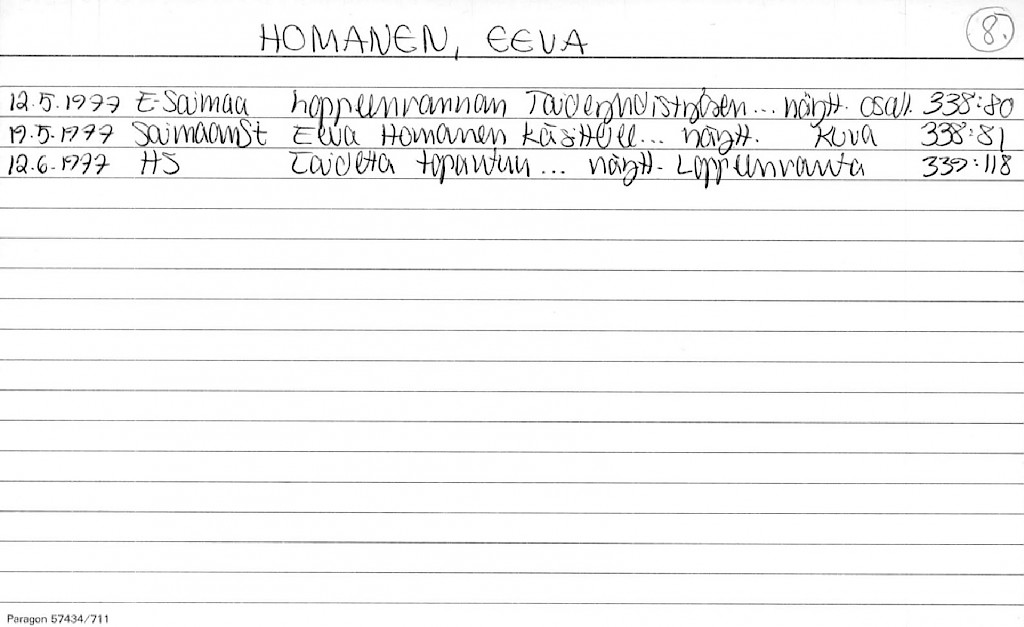 HOMANEN, EEVA
8.
12.5.1977 E-Saimaa Lappeenrannan Taideyhdistyksen... näytt. osall. 338:80
19.5.1977 SaimaanSt Eeva Homanen käsittelee... näytt. Kuva 338:81
12.6.1977 HS Taidetta tapahtuu... näytt. Lappeenranta 339:118
Paragon 57434/711